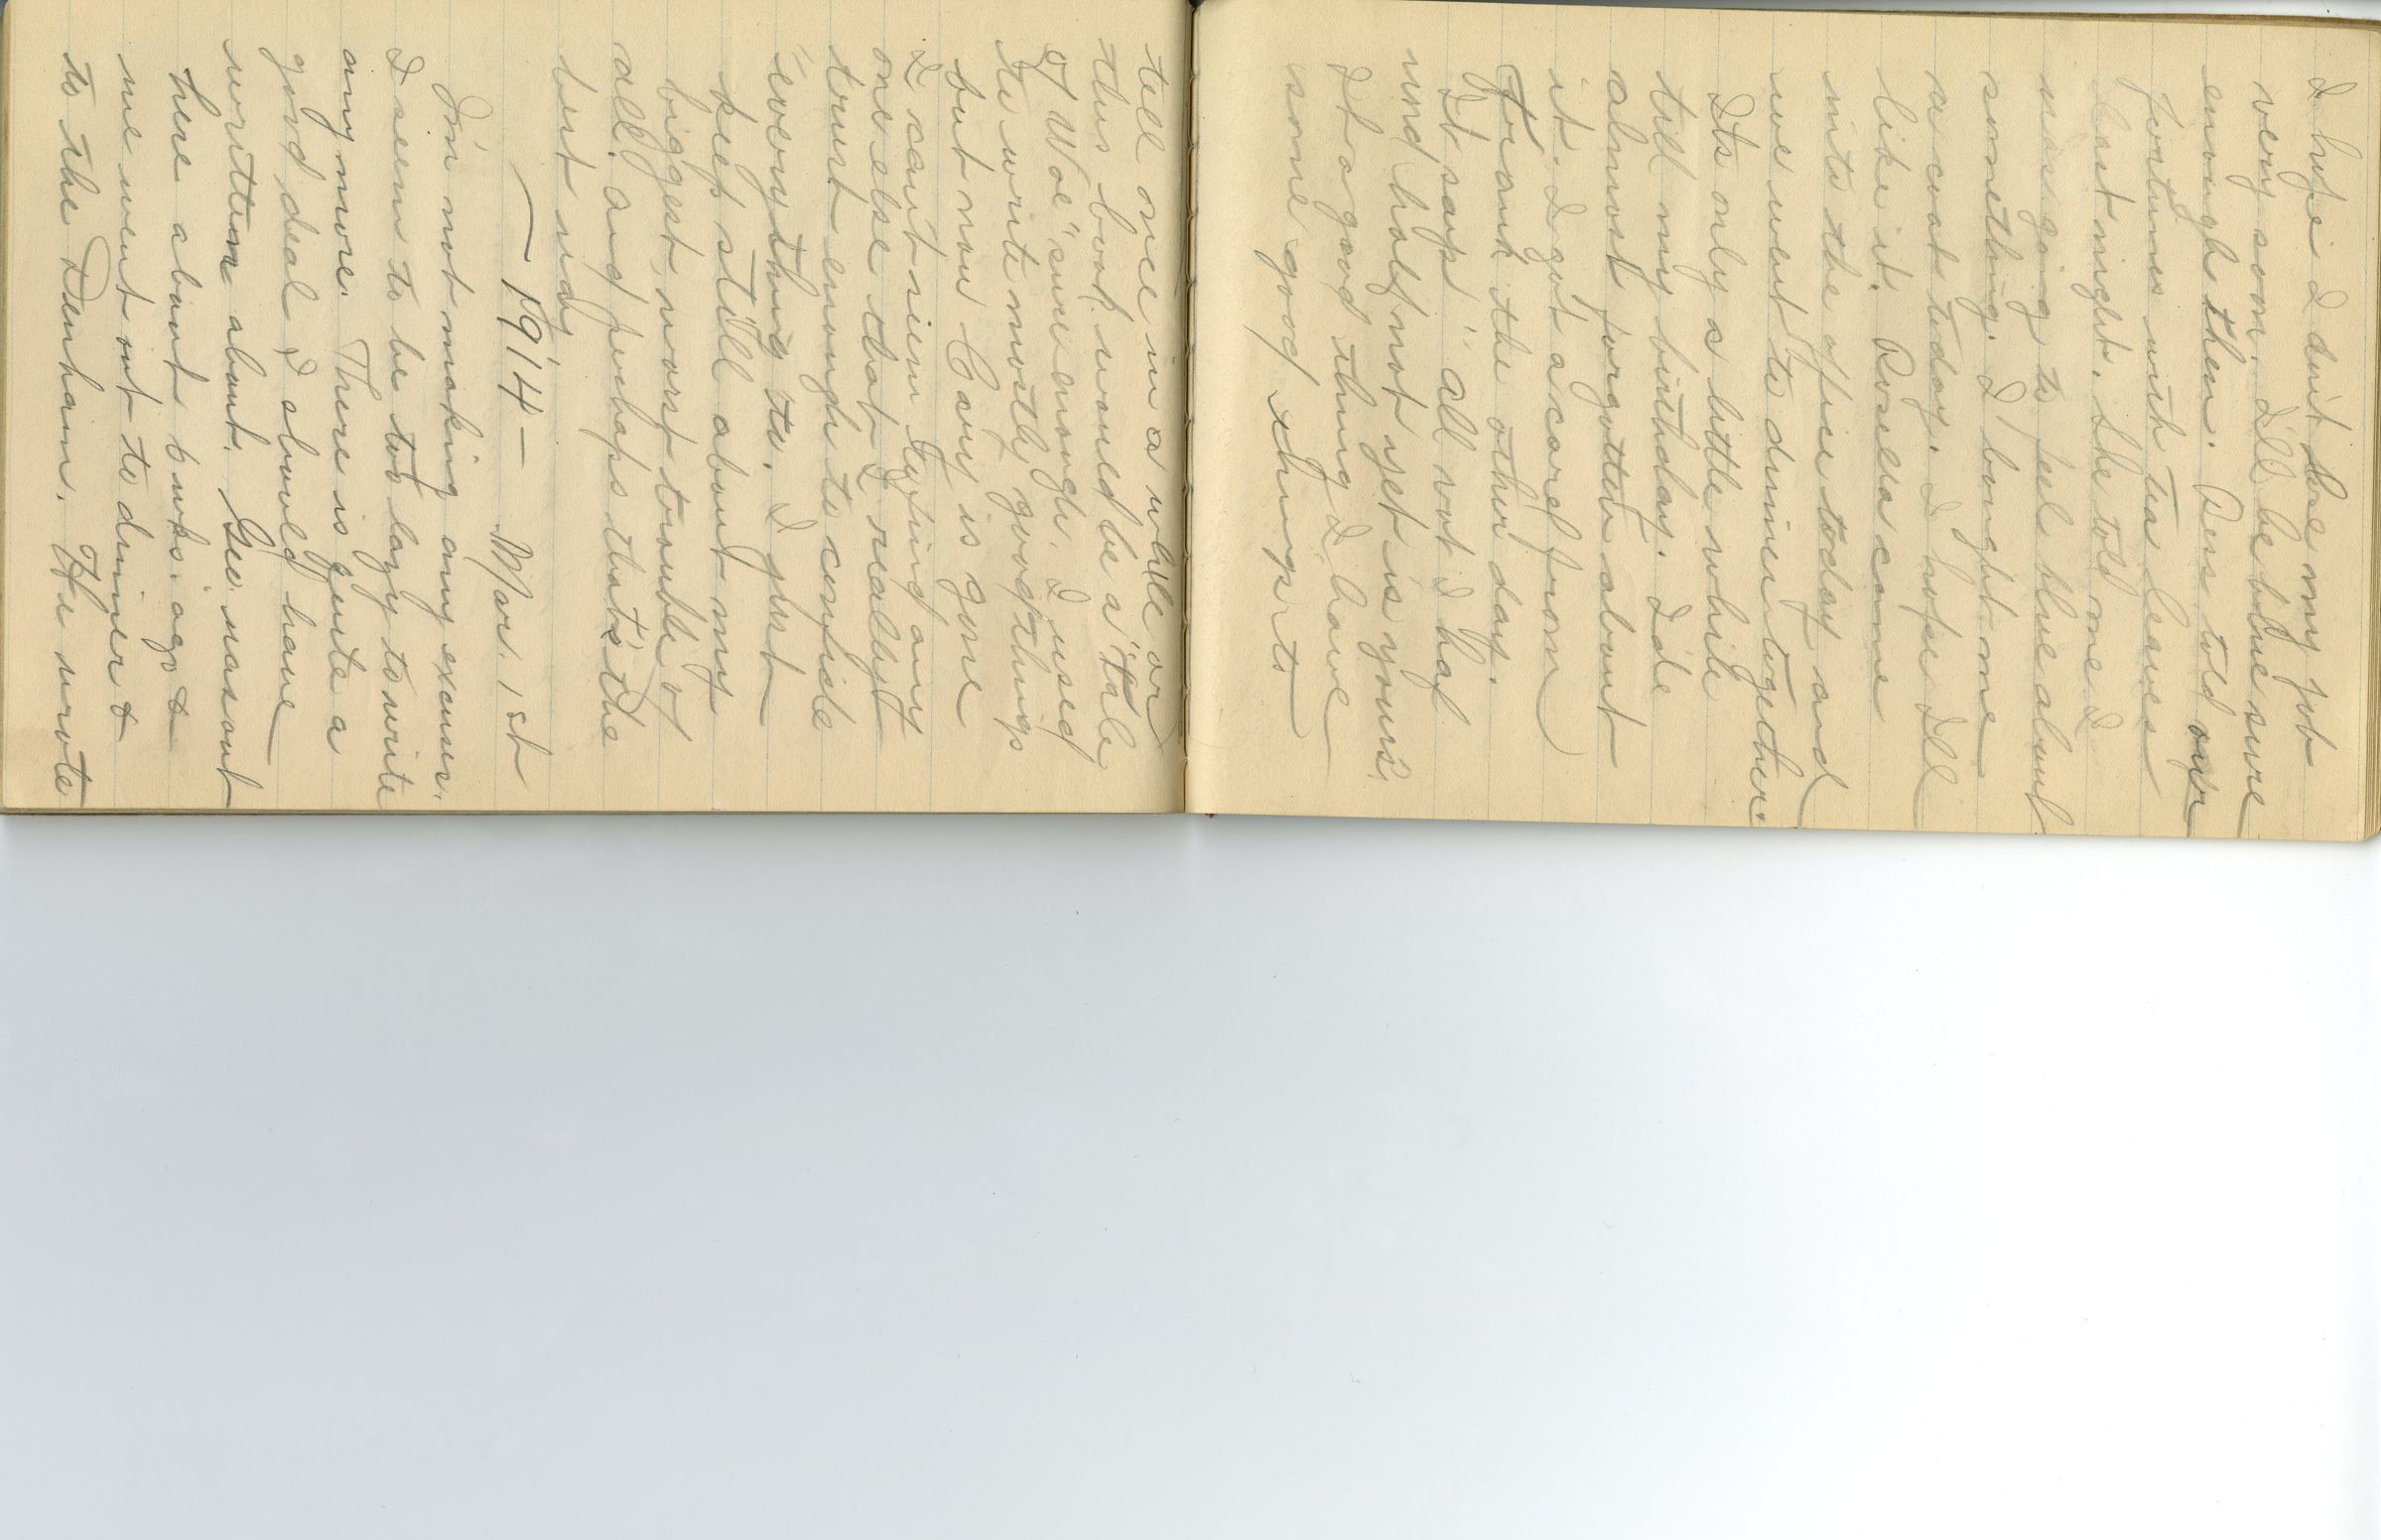 I hope I don't lose my job
very soon. I'll be blue sure
enough then. Bess told our
fortunes with tea leaves
last night. She told me I
was going to feel blue about
something. I bought me
a coat today. I hope I'll
like it. Rosella came
into the office today and
we went to dinner together.
Its only a little while
till my birthday. I'de
almost forgotten about
it. I got a card from
Frank the other day.
It says "All vot I haf
und half not yet is yours."
It a good thing I have
some good things to
tell once in a while or
this book would be a "tale
of Woe" sure enough. I used
to write mostly good things
but now Cary is gone
I can't seem to find any
one else that I really
trust enough to confide
everything to. I just
keep still about my
biggest worst trouble of
all and perhaps that's the
best way
— 1914 — Mar. 1st
I'm not making any excuses.
I seem to be too lazy to write
any more. There is quite a
good deal I should have
written about. Geo. was out
here about 6 wks. ago &
we went out to dinner &
to the Denham. He wrote